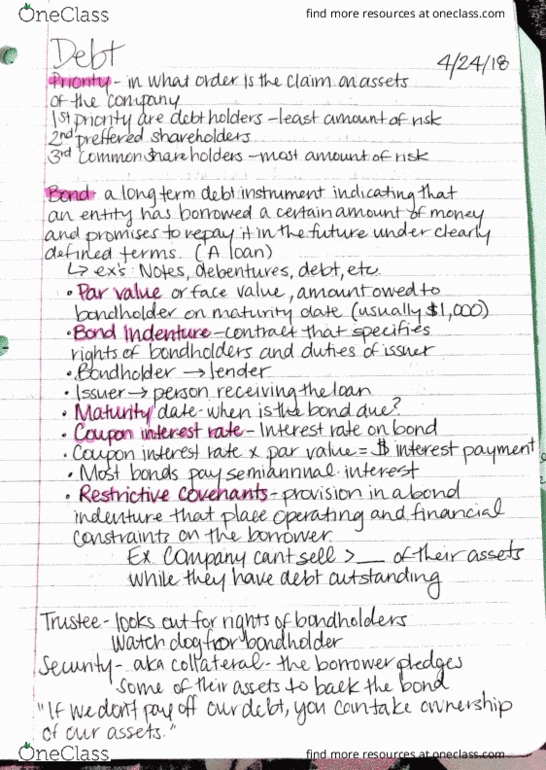 OneClass
find more resources at oneclass.com
Debt
4/24/18
Priority - in what order is the claim on assets
of the company
1st priority are debt holders - least amount of risk
2nd preffered shareholders
3rd Common shareholders - most amount of risk
Bond - a long term debt instrument indicating that
an entity has borrowed a certain amount of money
and promises to repay it in the future under clearly
defined terms. (A loan)
↳ ex's: Notes, debentures, debt, etc.
• Par value or face value, amount owed to
bondholder on maturity date (usually $1,000)
• Bond Indenture - contract that specifies
rights of bondholders and duties of issuer
• Bondholder → lender
• Issuer → person receiving the loan
• Maturity date - when is the bond due?
• Coupon interest rate - Interest rate on bond
• Coupon interest rate x par value = $ interest payment
• Most bonds pay semiannual interest
• Restrictive Covenants - provision in a bond
indenture that place operating and financial
constraints on the borrower
Ex. Company cant sell > __ of their assets
while they have debt outstanding
Trustee - looks out for rights of bondholders
Watch dog for bondholder
Security - aka collateral - the borrower pledges
some of their assets to back the bond
"If we don't pay off our debt, you can take ownership
of our assets."
OneClass
find more resources at oneclass.com